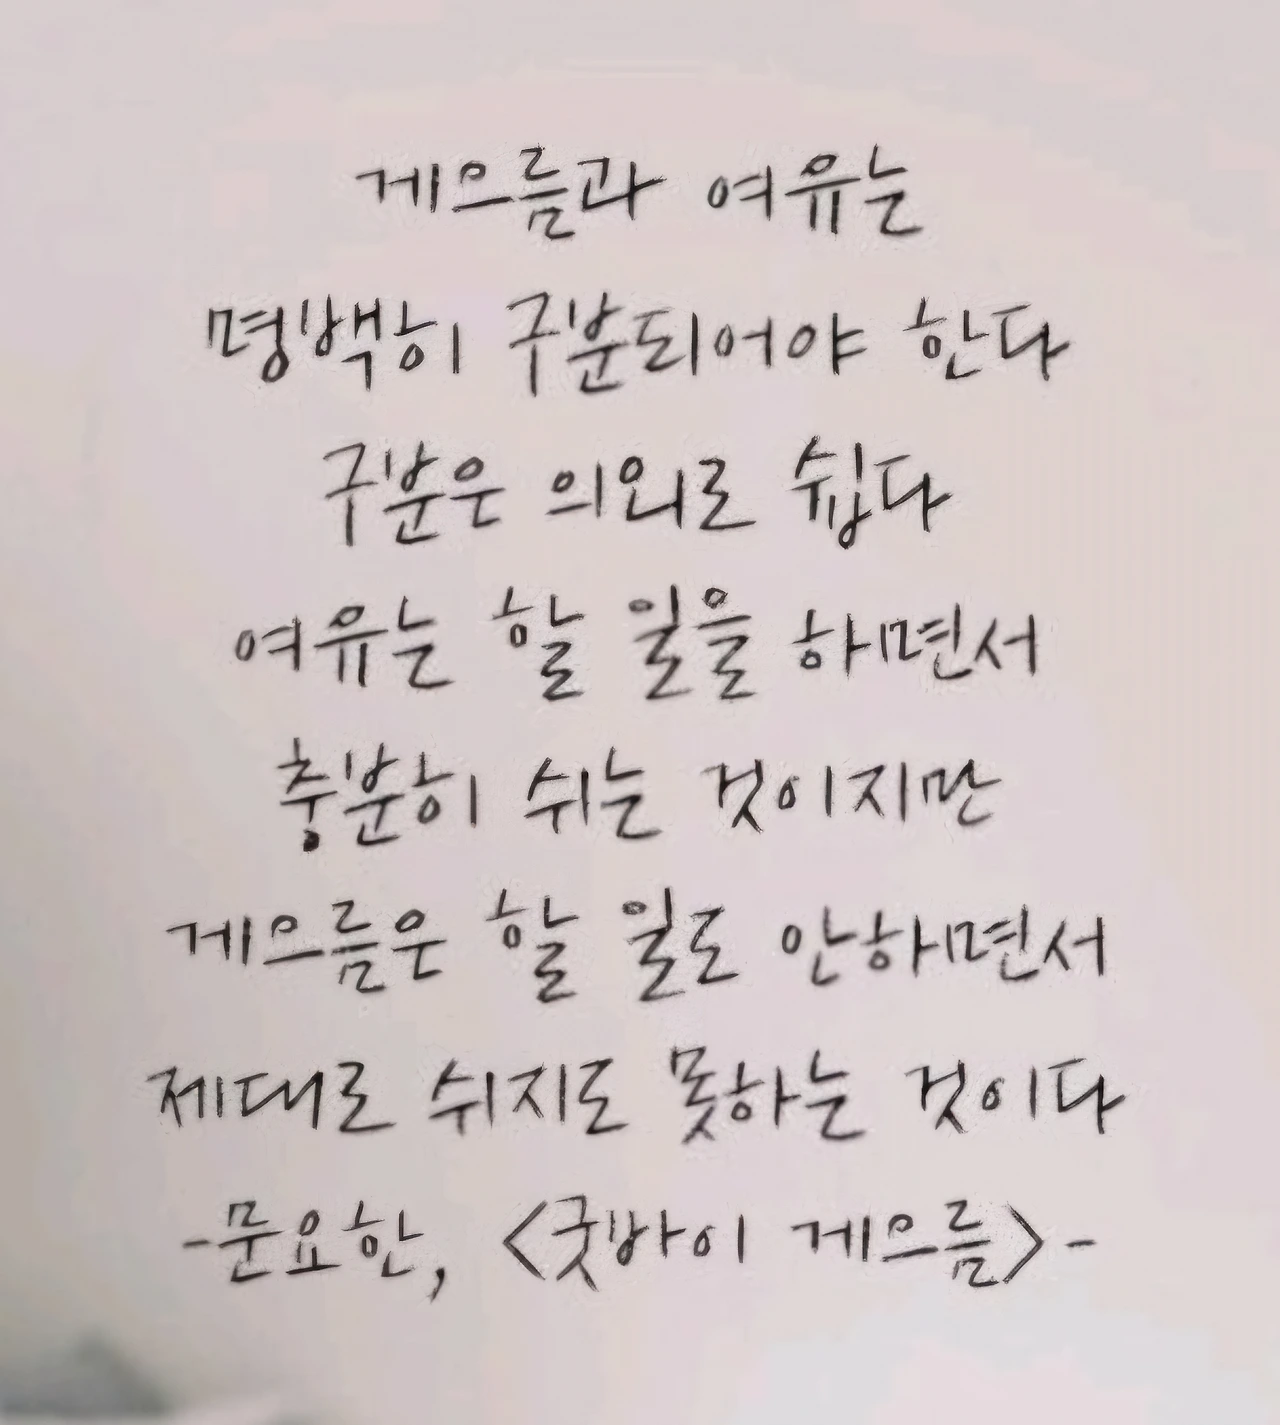 게으름과 여유는
명백히 구분되어야 한다
구분은 의외로 쉽다
여유는 할 일을 하면서
충분히 쉬는 것이지만
게으름은 할 일도 안하면서
제대로 쉬지도 못하는 것이다
-문요한, <굿바이 게으름>-